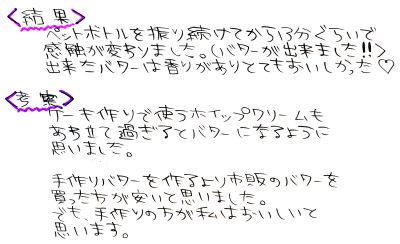 <結果>
ペットボトルを振り続けてから13分ぐらいで
感触が変わりました。(バターが出来ました!!>
出来たバターは香りがありとてもおいしかった♡
<考察>
ケーキ作りで使うホイップクリームも
あわ立て過ぎるとバターになるように
思いました。
手作りバターを作るより市販のバターを
買った方が安いて思いました。
でも、手作りの方が私はおいしいて
思います。